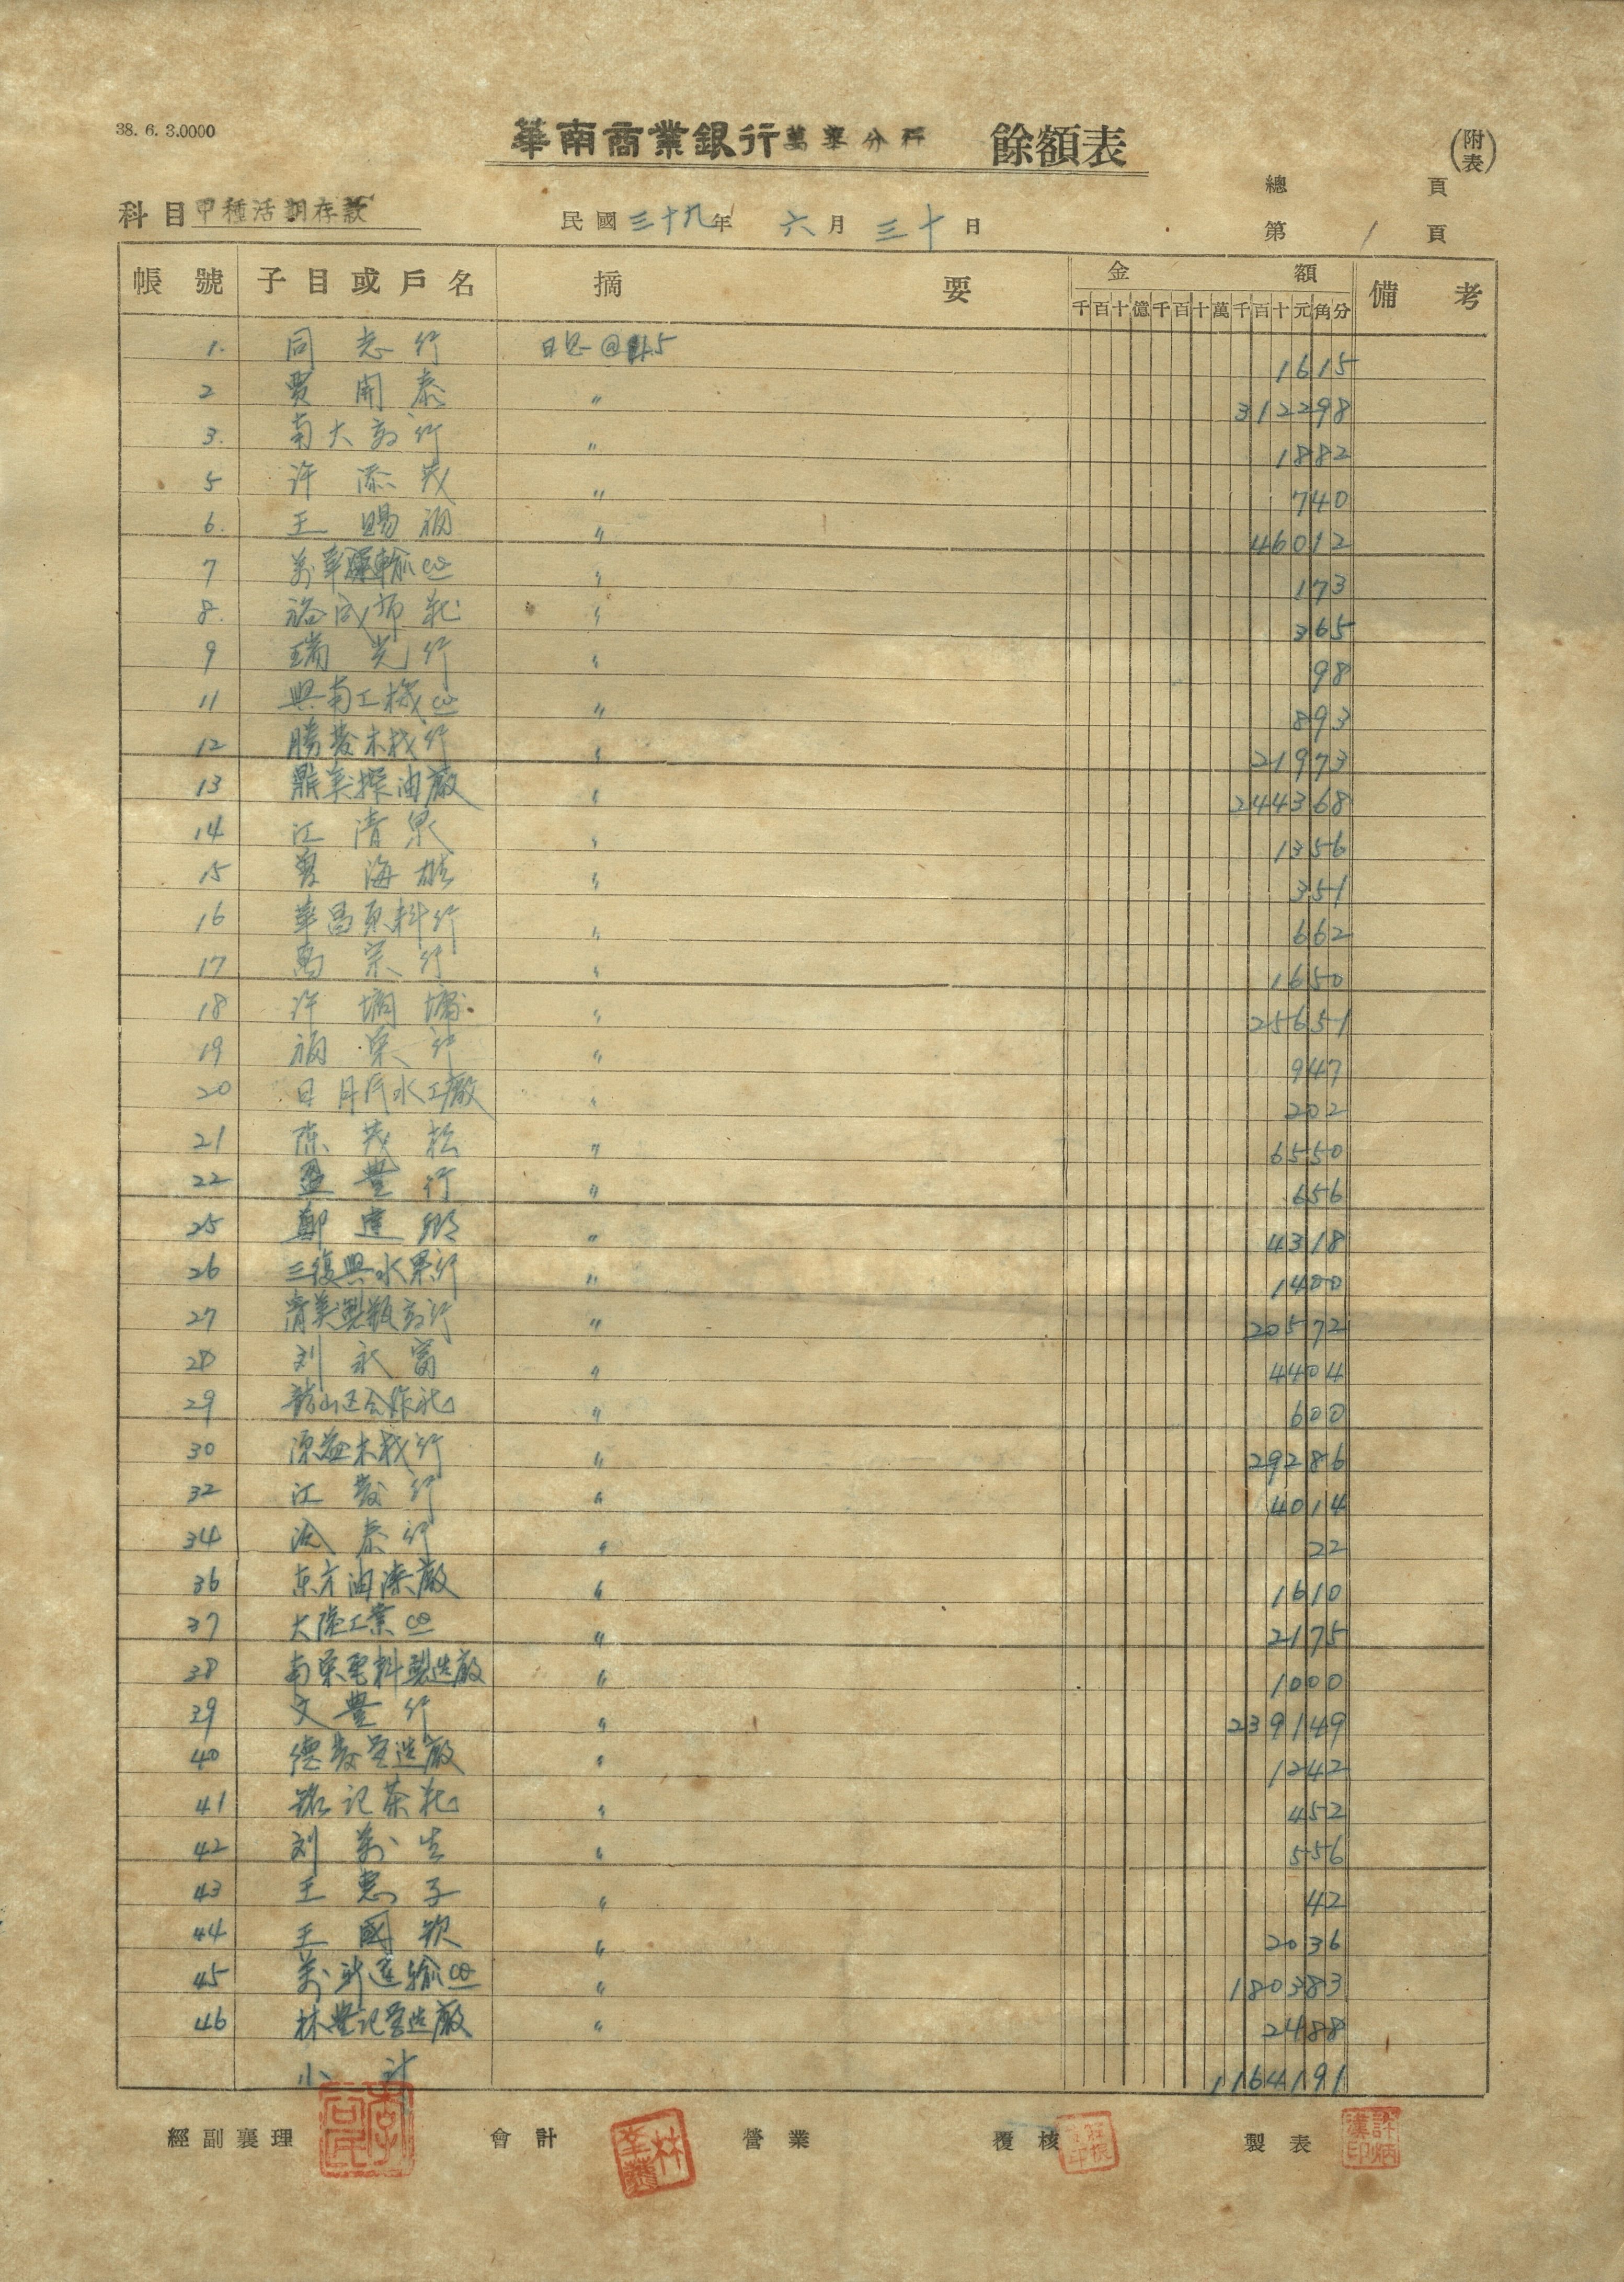 38. 6. 3.0000
華南商業銀行萬華分行 餘額表
(附表)
總 頁
科目 甲種活期存款 民國三十九年 六月三十日 第 1 頁
帳號 子目或戶名 摘要 金額 備考
千百十億千百十萬千百十元角分
1. 同志行 日息@4.5 1615
2 賈開泰 〃 312298
3. 南大行 〃 1882
5 許添茂 〃 740
6. 王賜福 〃 46012
7 万華運輸co 〃 173
8. 裕成布庄 〃 365
9 瑞光行 〃 98
11 興南工機co 〃 893
12 勝發木材行 〃 21973
13 鼎美搾油廠 〃 244368
14 江清泉 〃 1356
15 曾海 〃 351
16 華昌原料行 〃 662
17 萬宗行 〃 1650
18 許 〃 25651
19 福栄行 〃 947
20 日月汽水工廠 〃 202
21 陳茂松 〃 6550
22 盈豊行 〃 656
25 鄭建鄉 〃 4318
26 三復興水果行 〃 1400
27 清美製瓶行 〃 20572
28 刘永富 〃 4404
29 龍山区合作社 〃 600
30 源益木材行 〃 29286
32 江發行 〃 4014
34 泰行 〃 22
36 东方油漆廠 〃 1610
37 大陸工業co 〃 2175
38 南栄電料製造廠 〃 1000
39 文豊行 〃 239149
40 德發営造廠 〃 1242
41 銘記茶庄 〃 452
42 刘万生 〃 556
43 王惠子 〃 42
44 王國欽 〃 2036
45 万新運輸co 〃 180383
46 林豊記営造廠 〃 2488
小計 1164191
經副襄理 會計 營業 覆核 製表
許炳漢印